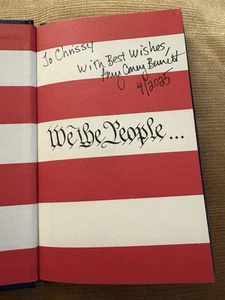 To Chrissy
With Best Wishes,
Amy Coney Barrett
4/2025
We the People...